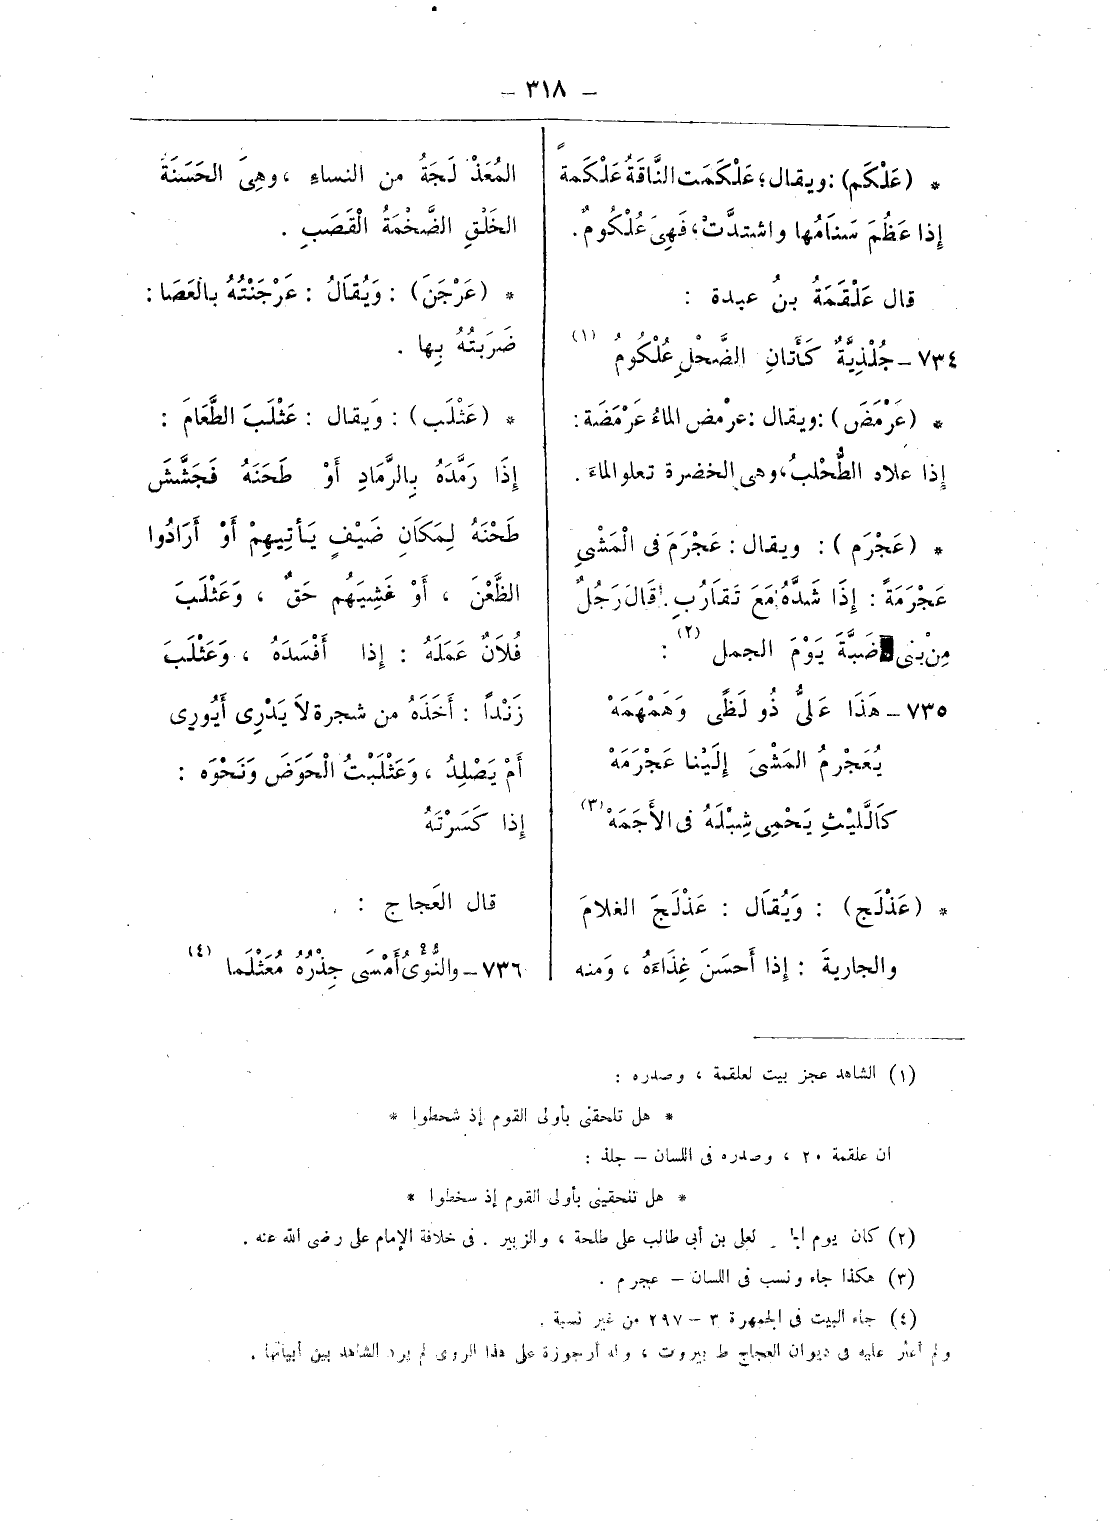 – ٣١٨ –
* (عَلْكَم) : ويقال ؛ عَلْكَمَت النَّاقَةُ عَلْكَمةً
إذا عَظُمَ سَنَامُها واشتدَّتْ ؛ فَهِىَ عُلْكُومٌ .
قال عَلْقَمَةُ بنُ عبدة :
٧٣٤ – جُلْذِيَّةٌ كَأَتانِ الضَّحْلِ عُلْكُومُ (١)
* (عَرْمَضَ) : ويقال : عرْمض الماءُ عَرْمَضَة :
إذا علاه الطُّحْلبُ ، وهى الخضرة تعلو الماءَ .
* (عَجْرَم) : ويقال : عَجْرَمَ فى الْمَشْىِ
عَجْرَمَةً : إذَا شَدَّهُ مَعَ تَقارُبِ . قَالَ رَجُلٌ
مِنْ بْنى ضَبَّةَ يَوْمَ الجمل (٢) :
٧٣٥ – هَذَا عَلِىٌّ ذُو لَظًى وَهَمْهَمَهْ
يُعَجْرِمُ المَشْىَ إلَيْنا عَجْرَمَهْ
كَالَّليْثِ يَحْمِى شِبْلَهُ فى الأَجَمَهْ (٣)
* (عَذْلَج) : وَيُقاَل : عَذْلَجَ الغلامَ
والجاريةَ : إذا أَحسَنَ غِذَاءَهُ ، وَمنه
المُعَذْ لَجَةُ من النساءِ ، وهِىَ الحَسَنَةُ
الخَلْقِ الضَّخْمَةُ الْقَصَبِ .
* (عَرْجَنَ) : وَيُقاَلُ : عَرْجَنْتُهُ بالعَصَا :
ضَرَبتُهُ بِها .
* (عَثْلَب) : وَيقال : عَثْلَبَ الطَّعَامَ :
إذَا رَمَّدَهُ بِالرَّمَادِ أَوْ طَحَنَهُ فَجَشَّشَ
طَحْنَهُ لِمَكَانِ ضَيْفٍ يَأتِيهِمْ أَوْ أَرَادُوا
الظَّعْنَ ، أَوْ غَشِيَهُم حَقٌ ، وَعَثْلَبَ
فُلَانٌ عَمَلَهُ : إذا أَفْسَدَهُ ، وَعَثْلَبَ
زَنْداً : أَخَذَهُ من شجرة لاَ يَدْرِى أَيُورِى
أَمْ يَصْلِدُ ، وَعَثْلَبْتُ الْحَوَضَ وَنَحْوَه :
إذا كَسَرْتَهُ
قال العَجاج :
٧٣٦ – والنُّؤْىُ أَمْسَى جِذْرُهُ مُعَثْلَما (٤)
(١) الشاهد عجز بيت لعلقمة ، وصدره :
* هل تلحقنى بأولى القوم إذ شحطوا *
ان علقمة ٢٠ ، وصدره فى اللسان – جلذ :
* هل تلحقينى بأولى القوم إذ سخطوا *
(٢) كان يوم لعلى بن أبى طالب على طلحة ، والزبير . فى خلافة الإمام على رضى الله عنه .
(٣) هكذا جاء ونسب فى اللسان – عجرم .
(٤) جاء البيت فى الجمهرة ٣ – ٢٩٧ من غير نسبة .
ولم أعثر عليه فى ديوان العجاج ط بيروت ، وله أرجوزة على هذا الروى لم يرد الشاهد بين أبياتها .